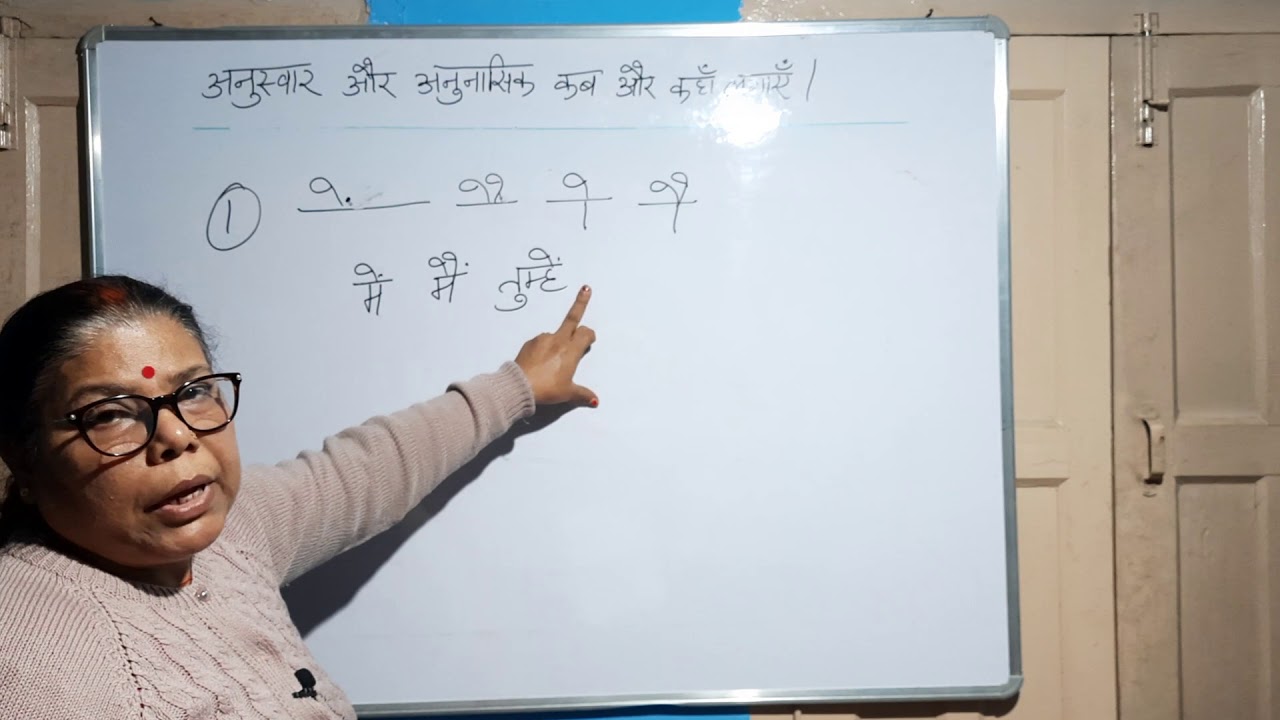 अनुस्वार और अनुनासिक कब और कहाँ लगाएँ।
① े ै ो ौ
में मैं तुम्हें